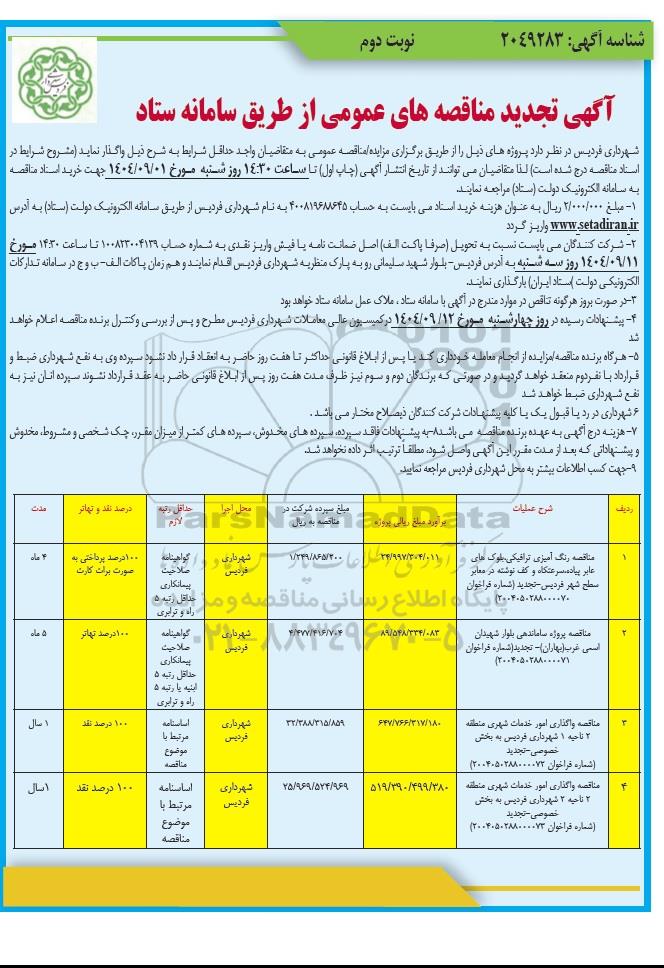 شناسه آگهی: ۲۰۴۹۲۸۳
نوبت دوم
آگهی تجدید مناقصه های عمومی از طریق سامانه ستاد
شهرداری فردیس در نظر دارد پروژه های ذیل را از طریق برگزاری مزایده/مناقصه عمومی به متقاضیان واجد حداقل شرایط به شرح ذیل واگذار نماید (مشروح شرایط در
اسناد مناقصه درج شده است) لذا متقاضیان می توانند از تاریخ انتشار آگهی (چاپ اول) تا ساعت ۱۴:۳۰ روز شنبه مورخ ۱۴۰۴/۰۹/۰۱ جهت خرید اسناد مناقصه
به سامانه الکترونیک دولت (ستاد) مراجعه نمایند.
۱- مبلغ ۲/۰۰۰/۰۰۰ ریال به عنوان هزینه خرید اسناد می بایست به حساب ۴۰۰۸۱۹۶۸۸۶۴۵ به نام شهرداری فردیس از طریق سامانه الکترونیک دولت (ستاد) به آدرس
www.setadiran.ir واریز گردد
۲- شرکت کنندگان می بایست نسبت به تحویل (صرفا پاکت الف) اصل ضمانت نامه یا فیش واریز نقدی به شماره حساب ۱۰۰۸۲۳۰۰۴۱۳۹ تا ساعت ۱۴:۳۰ مورخ
۱۴۰۴/۰۹/۱۱ روز سه شنبه به آدرس فردیس- بلوار شهید سلیمانی رو به پارک منظریه شهرداری فردیس اقدام نمایند و هم زمان پاکات الف- ب و ج در سامانه تدارکات
الکترونیکی دولت (ستاد ایران) بارگذاری نمایند.
۳-در صورت بروز هرگونه تناقض در موارد مندرج در آگهی با سامانه ستاد ، ملاک عمل سامانه ستاد خواهد بود
۴- پیشنهادات رسیده در روز چهارشنبه مورخ ۱۴۰۴/۰۹/۱۲ در کمیسیون عالی معاملات شهرداری فردیس مطرح و پس از بررسی و کنترل برنده مناقصه اعلام خواهد
شد
۵- هرگاه برنده مناقصه/مزایده از انجام معامله خودداری کند یا پس از ابلاغ قانونی حداکثر تا هفت روز حاضر به انعقاد قرار داد نشود سپرده وی به نفع شهرداری ضبط و
قرارداد با نفردوم منعقد خواهد گردید و در صورتی که برندگان دوم و سوم نیز ظرف مدت هفت روز پس از ابلاغ قانونی حاضر به عقد قرارداد نشوند سپرده انان نیز به
نفع شهرداری ضبط خواهد شد
۶ شهرداری در رد یا قبول یک یا کلیه پیشنهادات شرکت کنندگان ذیصلاح مختار می باشد .
۷- هزینه درج آگهی به عهده برنده مناقصه می باشد۸-به پیشنهادات فاقد سپرده، سپرده های مخدوش، سپرده های کمتر از میزان مقرر، چک شخصی و مشروط، مخدوش
و پیشنهاداتی که بعد از مدت مقرر این آگهی واصل شود، مطلقا ترتیب اثر داده نخواهد شد.
۹-جهت کسب اطلاعات بیشتر به محل شهرداری فردیس مراجعه نمایید.
ردیف شرح عملیات برآورد مبلغ ریالی پروژه مبلغ سپرده شرکت در مناقصه به ریال محل اجرا حداقل رتبه لازم درصد نقد و تهاتر مدت
۱ مناقصه رنگ آمیزی ترافیکی،بلوک های عابر پیاده،سرعتکاه و کف نوشته در معابر سطح شهر فردیس-تجدید (شماره فراخوان ۲۰۰۴۰۵۰۲۸۸۰۰۰۰۷۰) ۲۴/۹۹۷/۳۰۴/۰۱۱ ۱/۲۴۹/۸۶۵/۲۰۰ شهرداری فردیس گواهینامه صلاحیت پیمانکاری حداقل رتبه ۵ راه و ترابری ۱۰۰درصد پرداختی به صورت برات کارت ۴ ماه
۲ مناقصه پروژه ساماندهی بلوار شهیدان اسمی غرب(بهاران)- تجدید(شماره فراخوان ۲۰۰۴۰۵۰۲۸۸۰۰۰۰۷۱) ۸۹/۵۴۸/۳۳۴/۰۸۳ ۴/۴۷۷/۴۱۶/۷۰۴ شهرداری فردیس گواهینامه صلاحیت پیمانکاری حداقل رتبه ۵ ابنیه یا رتبه ۵ راه و ترابری ۱۰۰درصد تهاتر ۵ ماه
۳ مناقصه واگذاری امور خدمات شهری منطقه ۲ ناحیه ۱ شهرداری فردیس به بخش خصوصی-تجدید (شماره فراخوان ۲۰۰۴۰۵۰۲۸۸۰۰۰۰۷۲) ۶۴۷/۷۶۶/۳۱۷/۱۸۰ ۳۲/۳۸۸/۳۱۵/۸۵۹ شهرداری فردیس اساسنامه مرتبط با موضوع مناقصه ۱۰۰ درصد نقد ۱ سال
۴ مناقصه واگذاری امور خدمات شهری منطقه ۲ ناحیه ۲ شهرداری فردیس به بخش خصوصی-تجدید (شماره فراخوان ۲۰۰۴۰۵۰۲۸۸۰۰۰۰۷۳) ۵۱۹/۳۹۰/۴۹۹/۳۸۰ ۲۵/۹۶۹/۵۲۴/۹۶۹ شهرداری فردیس اساسنامه مرتبط با موضوع مناقصه ۱۰۰ درصد نقد ۱سال
ParsNamadData
پایگاه اطلاع رسانی مناقصه و مزایده
۰۲۱-۸۸۳۴۹۶۷۰-۵